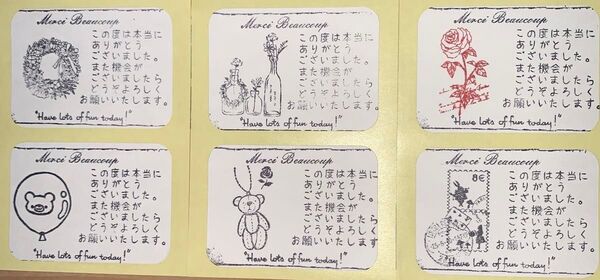 Merci Beaucoup
この度は本当に
ありがとう
ございました。
また機会が
ございましたら
どうぞよろしく
お願いいたします。
"Have lots of fun today!"
Merci Beaucoup
この度は本当に
ありがとう
ございました。
また機会が
ございましたら
どうぞよろしく
お願いいたします。
"Have lots of fun today!"
Merci Beaucoup
この度は本当に
ありがとう
ございました。
また機会が
ございましたら
どうぞよろしく
お願いいたします。
"Have lots of fun today!"
Merci Beaucoup
この度は本当に
ありがとう
ございました。
また機会が
ございましたら
どうぞよろしく
お願いいたします。
"Have lots of fun today!"
Merci Beaucoup
この度は本当に
ありがとう
ございました。
また機会が
ございましたら
どうぞよろしく
お願いいたします。
"Have lots of fun today!"
Merci Beaucoup
8€
この度は本当に
ありがとう
ございました。
また機会が
ございましたら
どうぞよろしく
お願いいたします。
"Have lots of fun today!"